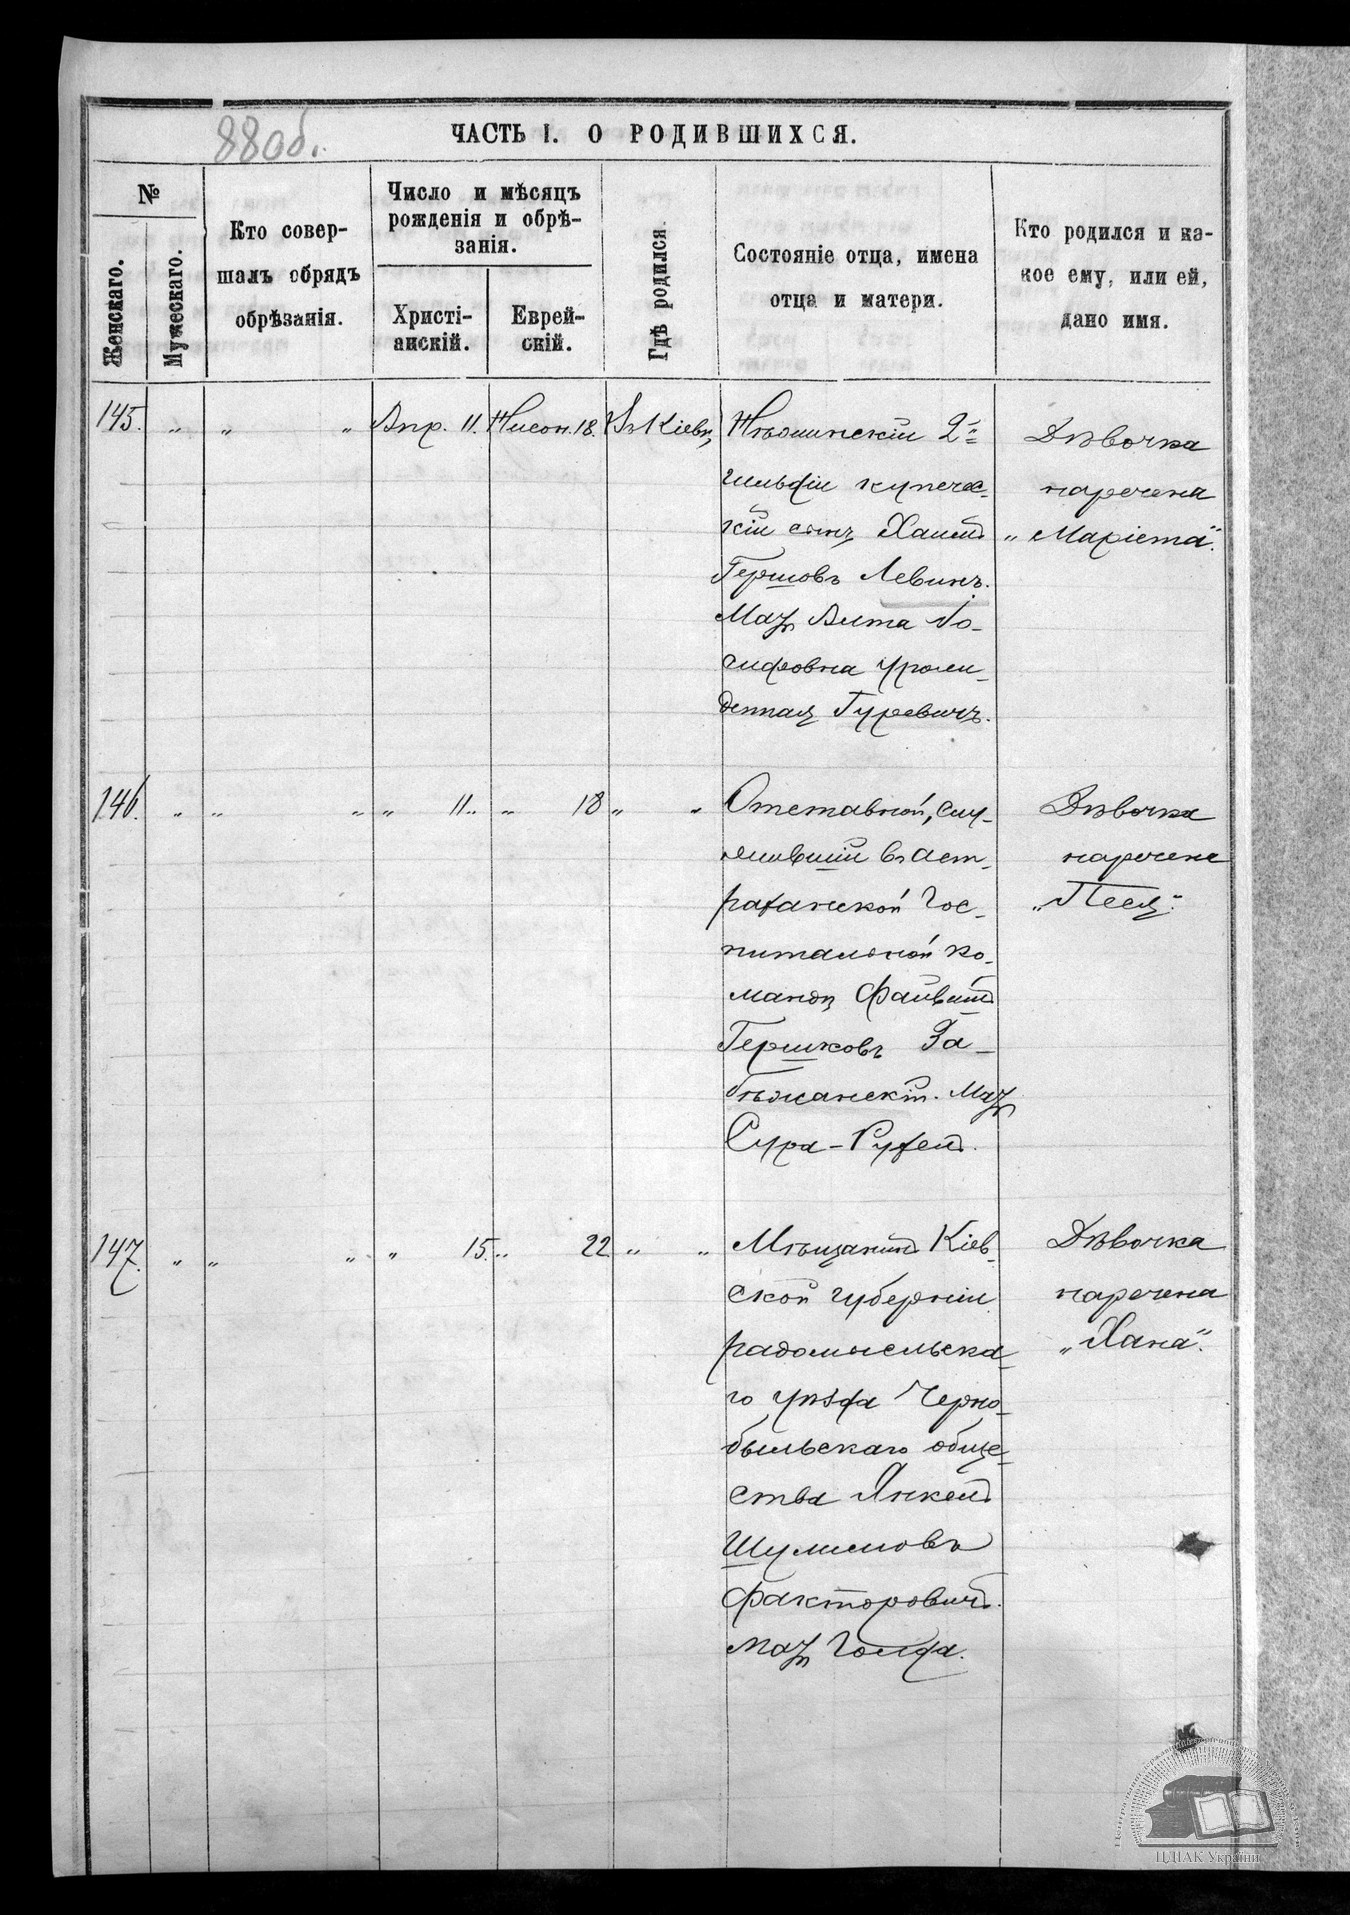 88об.
ЧАСТЬ I. О РОДИВШИХСЯ.
№
Женскаго.
Мужескаго.
Кто совер-
шалъ обрядъ
обрѣзанія.
Число и мѣсяцъ
рожденія и обрѣ-
занія.
Христі-
анскій.
Еврей-
скій.
Гдѣ родился.
Состояніе отца, имена
отца и матери.
Кто родился и ка-
кое ему, или ей,
дано имя.
145. " " " Апр. 11. Нисон. 18. Въ Кіевѣ,
Нѣжинскій 2й
гильдіи купечес-
кій сынъ Хаимъ
Гершовъ Левинъ.
Мать Алта Іо-
сифовна урожи-
денная Гуревичъ.
Дѣвочка
наречена
"Маріета".
146. " " " " 11. " 18 " "
Отставной, слу-
жившій въ Аст-
раханской Гос-
питальной ко-
мандѣ Файвишъ
Гершковъ За-
бѣжанскій. Мать
Сура-Рухель.
Дѣвочка
наречена
"Песя".
147. " " " " 15. " 22 " "
Мѣщанинъ Кіев-
ской губерніи
радомысльска-
го уѣзда Черно-
быльскаго обще-
ства Янкель
Шулимовъ
Факторовичъ.
Мать Голда.
Дѣвочка
наречена
"Хана".
ЦДІАК України